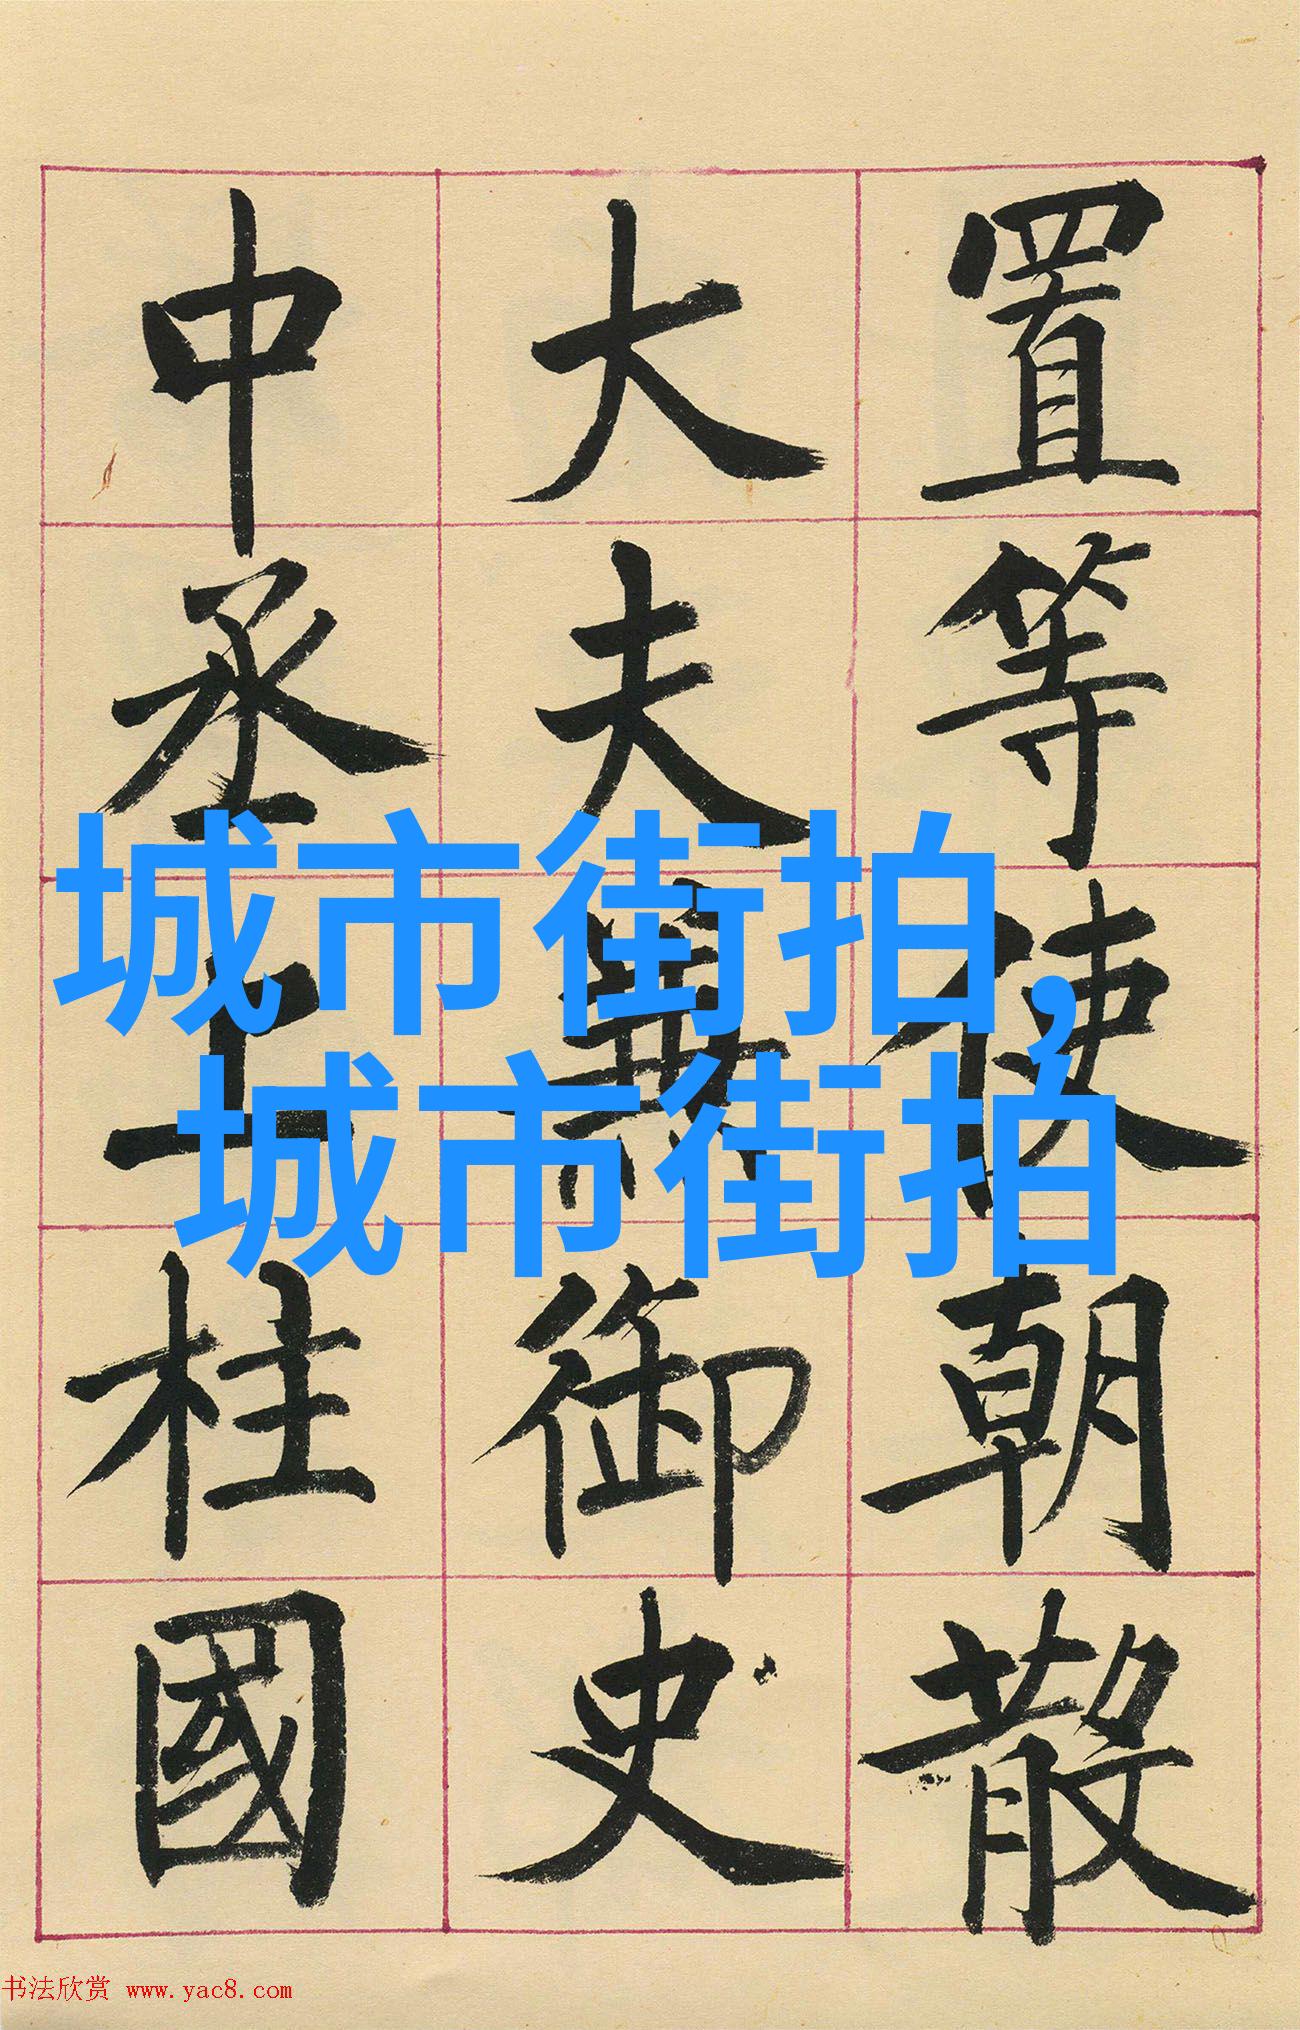 置等使朝散
大夫兼御史
中丞上柱國
城市街拍,
城市街拍
书法欣赏 www.yac8.com